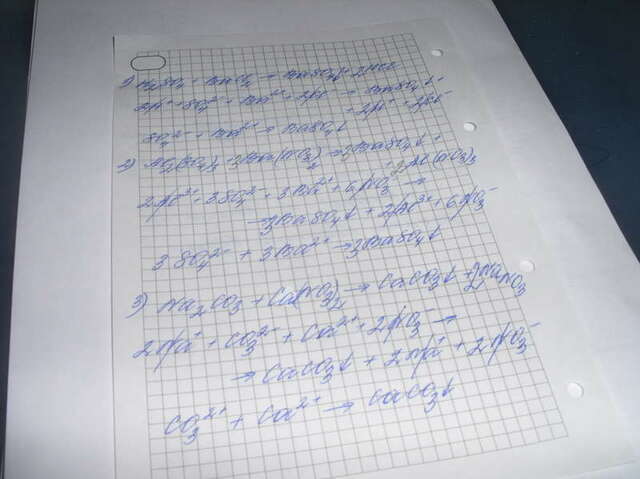 1) H2SO4 + BaCl2 → BaSO4↓ + 2HCl
2H⁺ + SO4²⁻ + Ba²⁺ + 2Cl⁻ → BaSO4↓
+ 2H⁺ + 2Cl⁻
SO4²⁻ + Ba²⁺ → BaSO4↓
2) Al2(SO4)3 + 3Ba(NO3)2 → 3BaSO4↓ +
+ 2Al(NO3)3
2Al³⁺ + 3SO4²⁻ + 3Ba²⁺ + 6NO3⁻ →
→ 3BaSO4↓ + 2Al³⁺ + 6NO3⁻
3SO4²⁻ + 3Ba²⁺ → 3BaSO4↓
3) Na2CO3 + Ca(NO3)2 → CaCO3↓ + 2NaNO3
2Na⁺ + CO3²⁻ + Ca²⁺ + 2NO3⁻ →
→ CaCO3↓ + 2Na⁺ + 2NO3⁻
CO3²⁺ + Ca²⁺ → CaCO3↓